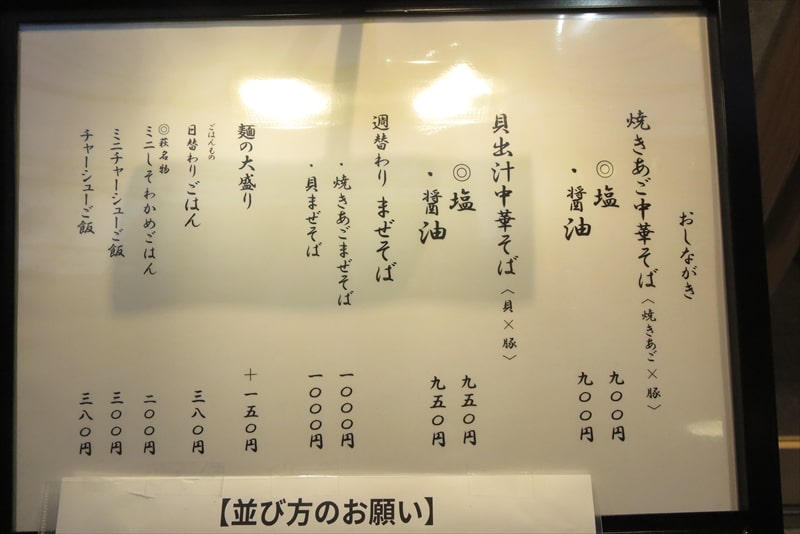 おしながき
焼きあご中華そば〈焼きあご×豚〉
◎塩 九〇〇円
・醤油 九〇〇円
貝出汁中華そば〈貝×豚〉
◎塩 九五〇円
・醤油 九五〇円
週替わり まぜそば
・焼きあごまぜそば 一〇〇〇円
・貝まぜそば 一〇〇〇円
麺の大盛り +一五〇円
ごはんもの
日替わりごはん 三八〇円
◎萩名物
ミニしそわかめごはん 二〇〇円
ミニチャーシューご飯 三〇〇円
チャーシューご飯 三八〇円
【並び方のお願い】